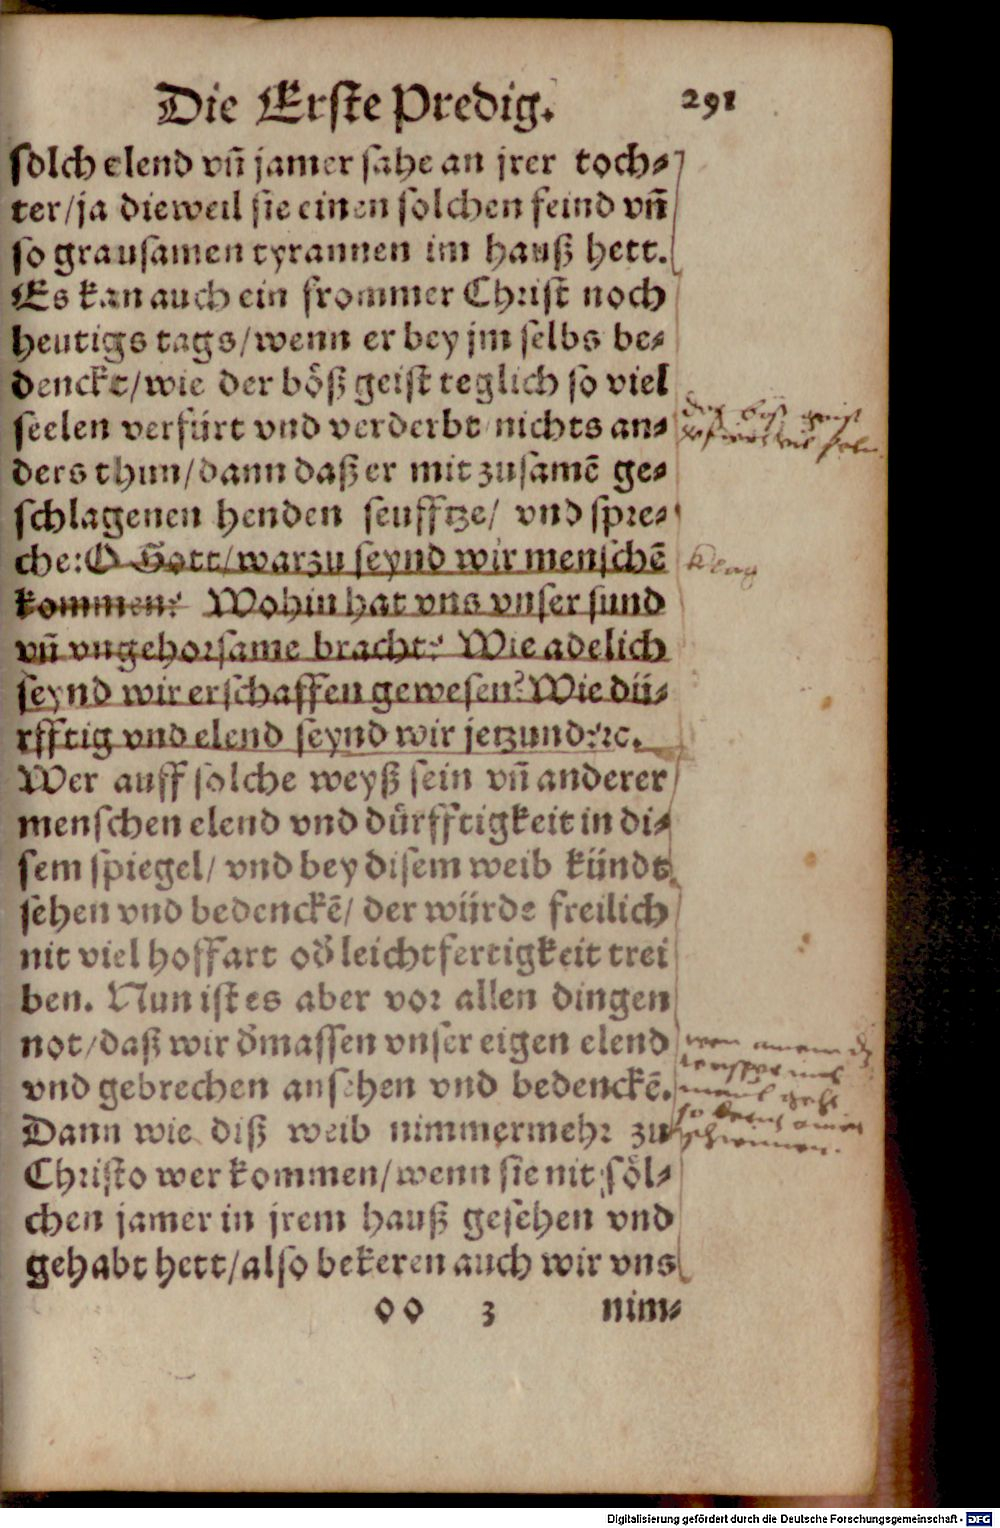 Die Erste Predig. 291
solch elend vñ jamer sahe an jrer toch⸗
ter/ja dieweil sie einen solchen feind vñ
so grausamen tyrannen im hauß hett.
Es kan auch ein frommer Christ noch
heutigs tags/wenn er bey jm selbs be⸗
denckt/wie der böß geist teglich so viel
seelen verfürt vnd verderbt nichts an⸗
ders thun/dann daß er mit zusamē ge⸗
schlagenen henden seufftze/ vnd spre⸗
che: O Gott/warzu seynd wir menschē
kommen? Wohin hat vns vnser sund
vñ vngehorsame bracht? Wie adelich
seynd wir erschaffen gewesen? Wie dü⸗
rfftig vnd elend seynd wir jetzund?ꝛc.
Wer auff solche weyß sein vñ anderer
menschen elend vnd dürfftigkeit in di⸗
sem spiegel/ vnd bey disem weib kündt
sehen vnd bedenckē/ der würde freilich
nit viel hoffart oď leichtfertigkeit trei
ben. Nun ist es aber vor allen dingen
not/daß wir ďmassen vnser eigen elend
vnd gebrechen ansehen vnd bedenckē.
Dann wie diß weib nimmermehr zu
Christo wer kommen/wenn sie nit söl⸗
chen jamer in jrem hauß gesehen vnd
gehabt hett/also bekeren auch wir vns
oo 3 nim⸗
böß geist
Klag
Digitalisierung gefördert durch die Deutsche Forschungsgemeinschaft - DFG